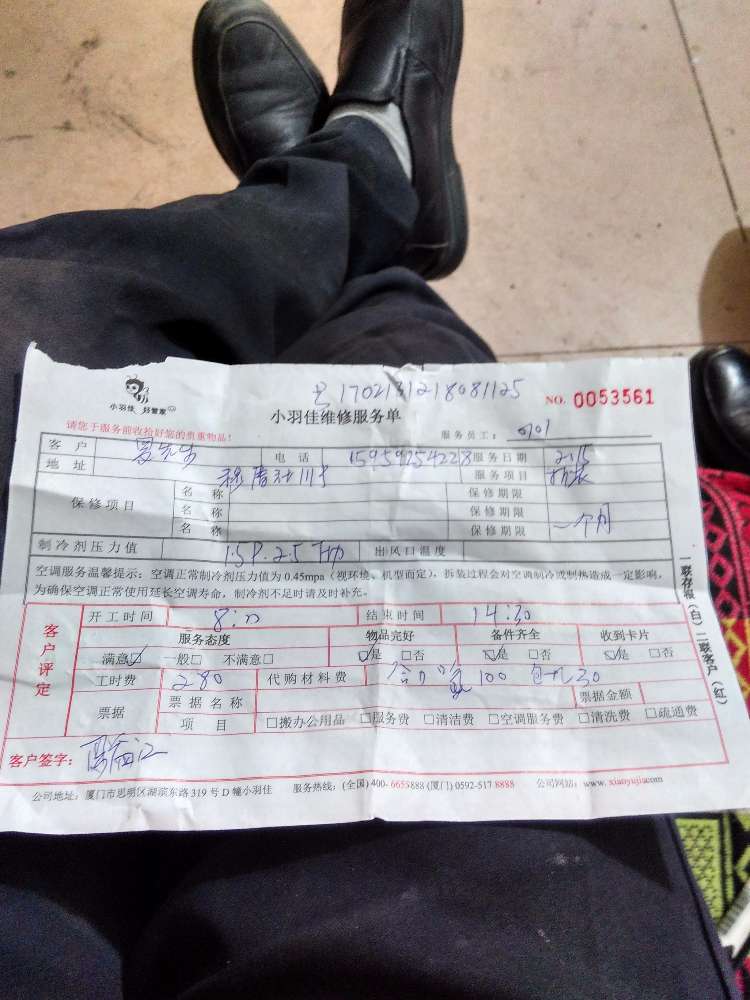 1702131218081125
小羽佳 好管家
小羽佳维修服务单
NO. 0053561
请您于服务前收拾好您的贵重物品!
服务员工:
客户 电话 15959254228 服务日期 2.15
地址 服务项目 拆装
保修项目 名称 保修期限
名称 保修期限
名称 保修期限 一个月
制冷剂压力值 1.5P.2.5 出风口温度
空调服务温馨提示:空调正常制冷剂压力值为0.45mpa(视环境、机型而定),拆装过程会对空调制冷或制热造成一定影响,
为确保空调正常使用延长空调寿命,制冷剂不足时请及时补充。
一联存根(白)二联客户(红)
客户评定
开工时间 结束时间 14:30
服务态度 物品完好 备件齐全 收到卡片
满意☑ 一般□ 不满意□ ☑是 □否 ☑是 □否 ☑是 □否
工时费 280 代购材料费 100 30
票据 票据名称 票据金额
项目 □搬办公用品 □服务费 □清洁费 □空调服务费 □清洗费 □疏通费
客户签字:
公司地址:厦门市思明区湖滨东路319号D幢小羽佳 服务热线:(全国)400-6655888(厦门)0592-517 8888 公司网站:www.xiaoyujia.com